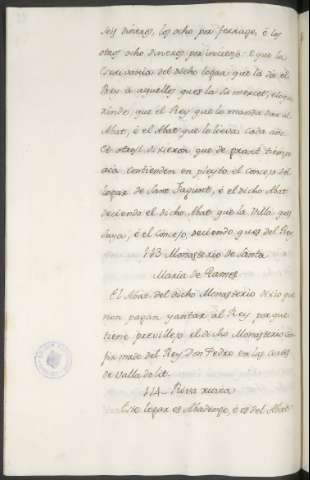 seis dineros, los ocho por ferrage, é los
otros ocho dineros por inciens é que la
Escrivania del dicho logar que la da el
Rey à aquellos que es la sù merced, é lo que
rinde, que el Rey que lo manda dar al
Abat, é el Abat que lo lieva cada año.
Et otrosi dixeron que de grant tiempo
aca contienden en pleyto el concejo del
logar de Sant Fagunt, é el dicho Abat
deciendo el dicho Abat que la Villa que es
suya, é el Concejo, deciendo que es del Rey
113 Monasterio de Santa
Maria de
El Abat del dicho Monasterio dixo que
non pagan yantar al Rey por que
tiene previllejo el dicho Monasterio con
firmado del Rey Don Pedro en las cortes
de Valladolit.
114 Riva
Este logar es Abadengo, é es del Abat